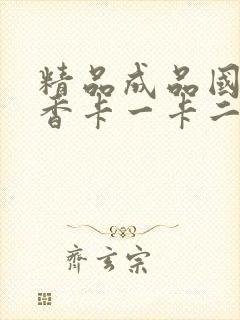 精品成品國
香卡一卡二
齊玄宗